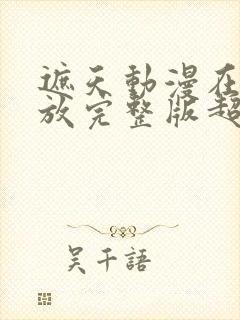 遮天動漫在
放完整版超
吴千語